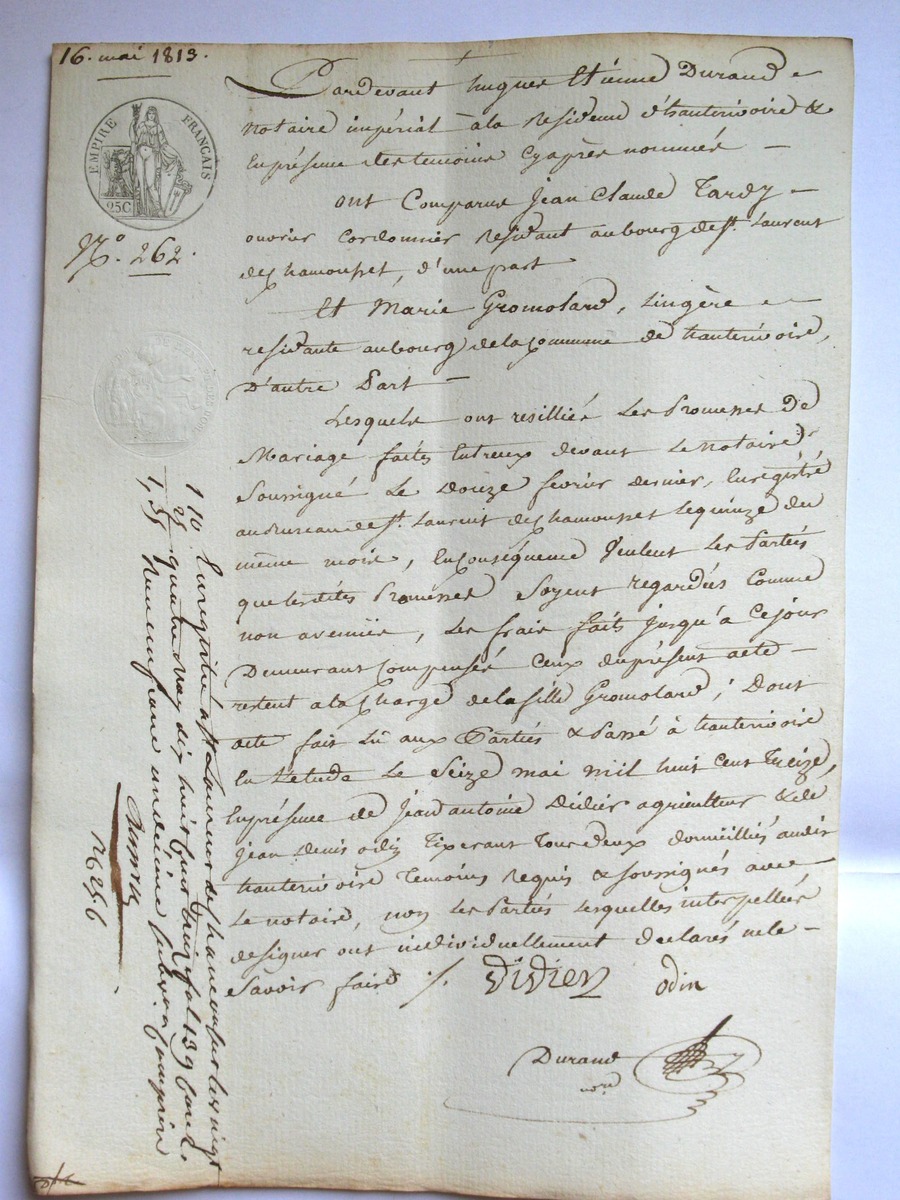 16. mai 1813.
EMPIRE FRANÇAIS
25C
N.° 262.
Pardevant hugues Etienne Durand
notaire impérial à la Residence d'hauterivoire &
En présence des temoins Cyaprès nommés —
ont Comparus Jean Claude Tardy —
ouvrier Cordonnier Residant au bourg de st. Laurent
de Chamousset, d'une part
Et Marie Gromolard, Lingère
residante au bourg de la Commune de hauterivoire,
D'autre Part —
Lesquels ont resilliés Les Promesses De
Mariage faites Entreux devant Le notaire
Soussigné Le Douze fevrier dernier, Enregistré
au Bureau de st. Laurent de Chamousset le quinze du
même mois, En Conséquence Veulent Les Parties
que lesdites Promesses Soyent regardées Comme
non avenues, Les frais faits jusqu'à Ce jour
Demeurant Compensés Ceux du présent acte —
restent a la Charge de la fille Gromolard; Dont
acte fait Lû aux Parties & Passé à hauterivoire
En L'etude Le Seize mai mil huit Cent Treize,
En présence de Jean antoine Didier agriculteur & de
Jean Denis odin Tixerant Tous deux domiciliés audit
hauterivoire Temoins Requis & soussignés avec —
Le notaire, non Les Parties Lesquelles interpellées
de signer ont individuellement declarés ne le —
Savoir faire ./.
Didier odin
Durand
nore
1 10 Enregistré à st Laurent de Chamousset le vingt
25 quatre may dix huit cent treize fol 139 Case
1,35 Reçu un franc un decime subvon comprise